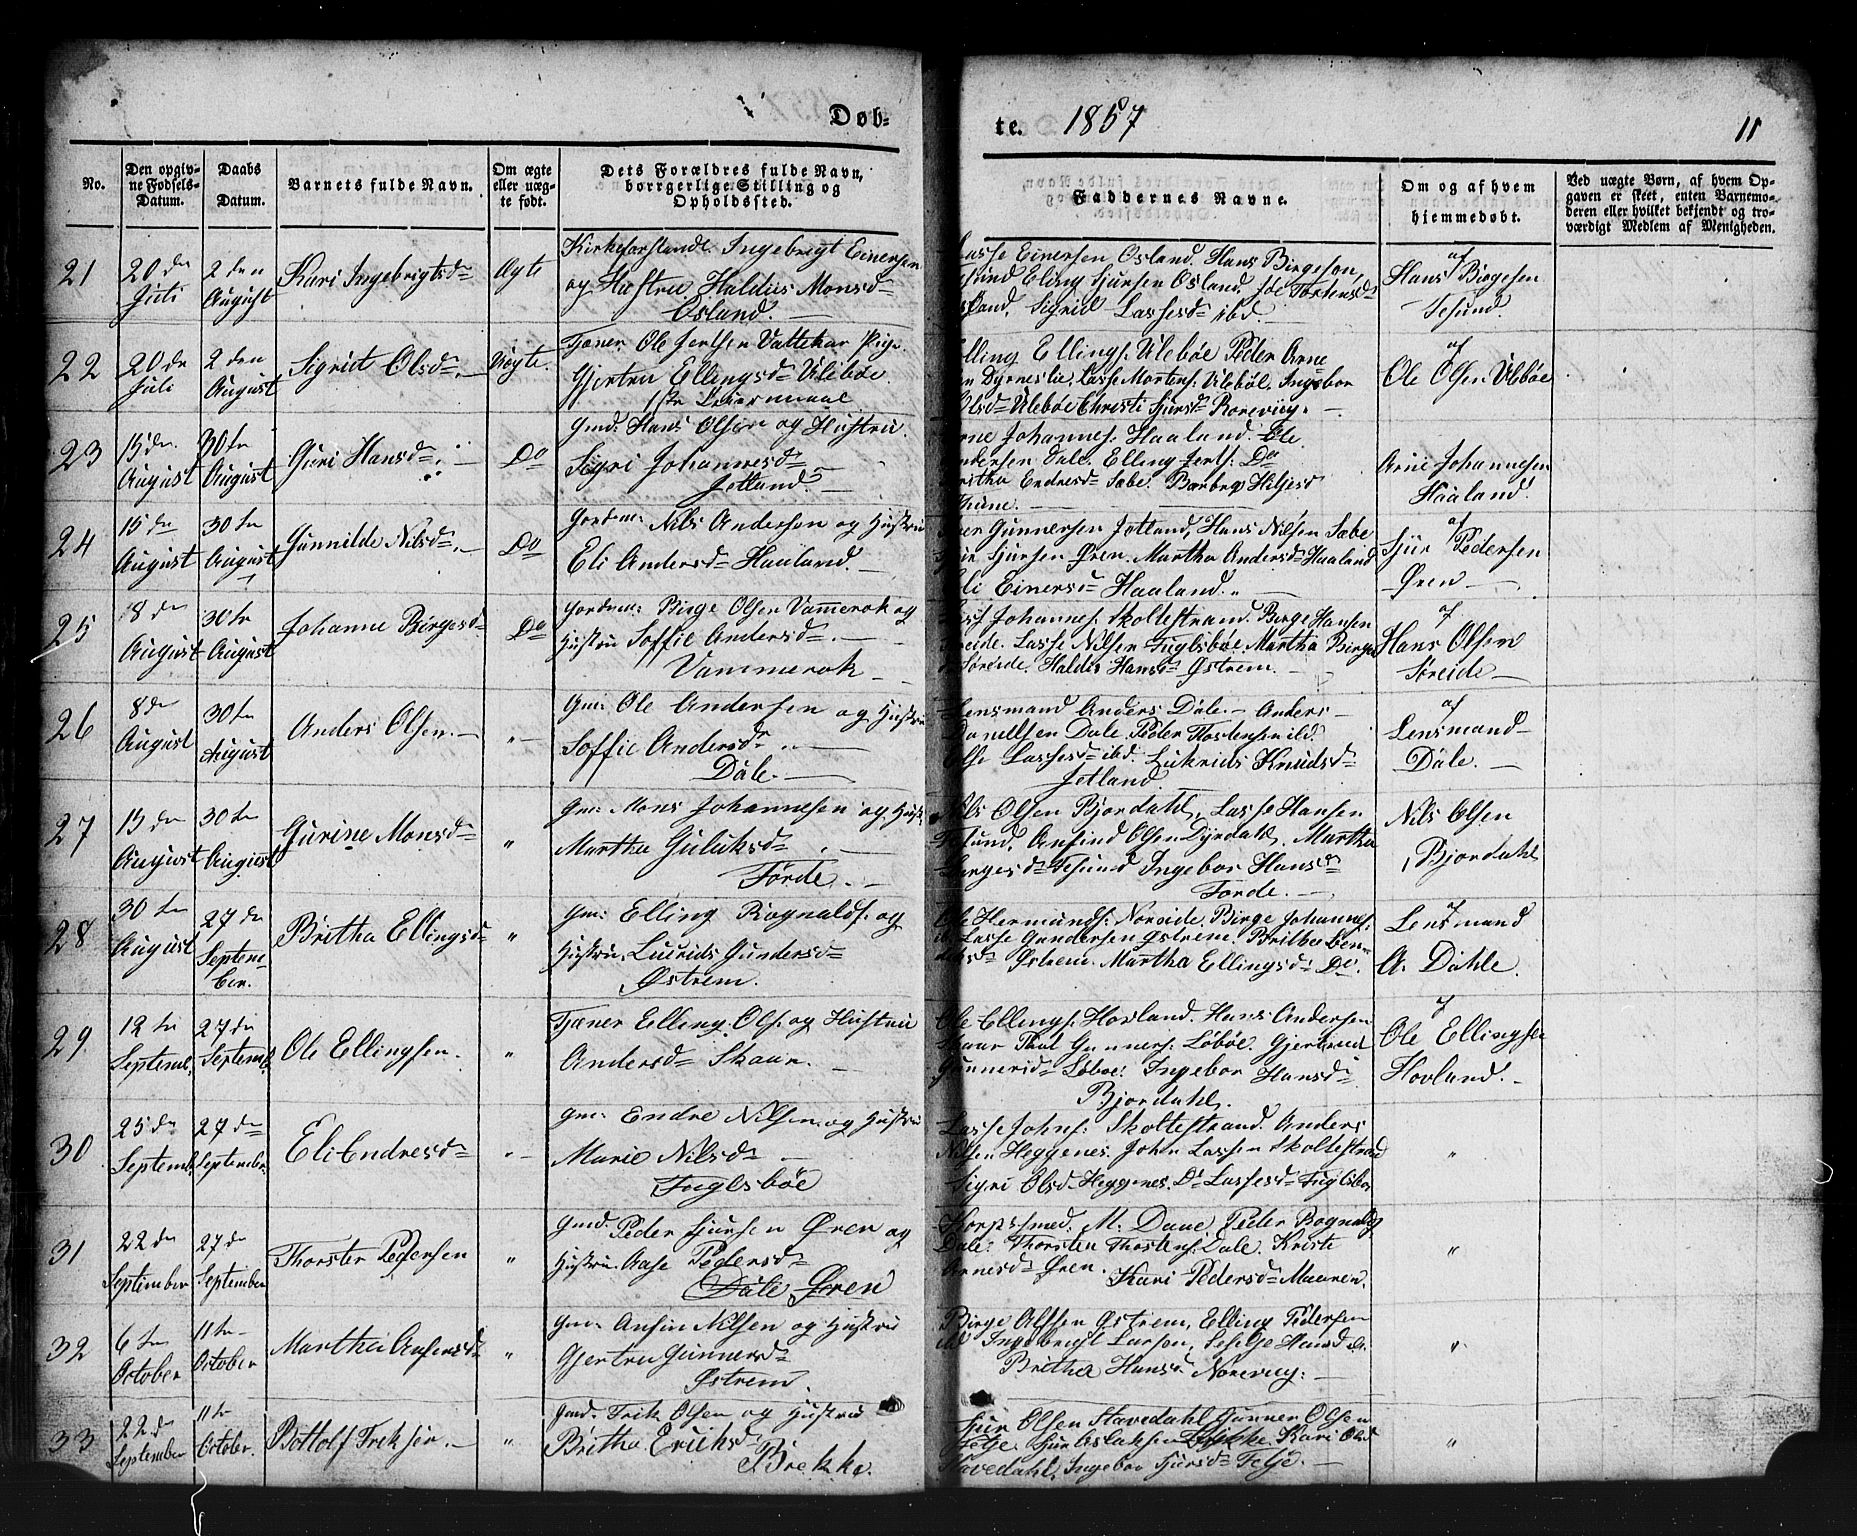 Døb-
te. 1857
11
No.
Den opgiv-
ne Fødsels-
Datum.
Daabs
Datum.
Barnets fulde Navn.
Om ægte
eller uæg-
te født.
Dets Forældres fulde Navn,
borgerlige Stilling og
Opholdssted.
Faddernes Navne.
Om og af hvem
hjemmedøbt.
Ved uægte Børn, af hvem Op-
gaven er skeet, enten Barnemo-
deren eller hvilket bekjendt og tro-
værdigt Medlem af Menigheden.
21
20 de
Juli
2 den
August
Kari Ingebrigtsd
Ægte
Kirkeforstande Ingebrigt Einersen
og Hustru Haldies Monsd
Osland.
Lasse Einersen Osland, Hans Birgeson,
Eling Sjursen Osland
Sigrid Lassesd ibd.
af
Hans Birgesen
Tesund.
22
20 de
Juli
2 den
August
Sigrid Olsd
Uægte.
Tjener Ole Jertsen Vattekar Pige
Gjertru Ellingsd Uleböe
1ste Leiermaal
Ellings: Uleböe Peder Arne
Dyrneslie, Lasse Mortens: Uleböe, Ingebor
Olsd Uleböe Christi Sjursd
af
Ole Olsen Uleböe
23
15 de
August
30 te
August
Guri Hansd
Do
Gmd. Hans Olsen og Hustru
Sigri Johannesd
Jotland.
Arne Johannes: Haaland. Ole
Andersen Dale. Elling Do
Britha Endresd Sæbe.
Thune.
Arne Johannesen
Haaland.
24
15 de
August
30 te
August
Gunnilde Nilsd
Do
Gordm: Nils Andersen og Hustru
Eli Andersd Haaland.
Gunnersen Jotland, Hans Nilsen Sæbe
Sjursen Øren. Martha Andersd Haaland
Eli Einersd Haaland.
af
Sjur Pedersen
Øren
25
18 de
August
30 te
August
Johanne Birgesd
Do
Gordm: Birge Olsen Vammerak og
Hustru Soffie Andersd
Vammerak
Johannes: Skoltestrand. Birge Hansen
Søreide. Lasse Nilsen Fuglsböe, Martha Birges
Søreide. Haldis Hansd Østrem.
af
Hans Olsen
Søreide
26
8 de
August
30 te
August
Anders Olsen.
"
Gm: Ole Andersen og Hustru
Soffie Andersd
Dale.
Lensmand Anders Dale. Anders
Danelsen Dale. Peder Thostensen ibd.
Lassesd ibd. Lukrids Knudsd
Jotland
af
Lensmand
Dale.
27
15 de
August
30 te
August
Gurine Monsd
"
Gm: Mons Johannesen og Hust
Martha Guluksd
Førde.
Nils Olsen Bjordahl, Lasse Hansen
Tesund. Anfind Olsen Dyrdahl. Martha
Birgesd Tesund Ingebor Hansd
Førde.
Nils Olsen
Bjordahl
28
30 te
August
27 de
Septem-
ber.
Britha Ellingsd
"
Gm: Elling Rognalds: og
Hustru. Gundersd
Østrem.
Ole Hermunds: Noreide. Birge Johannes:
Lasse Gundersen Østrem. Britha
Østrem. Martha Ellingsd Do.
af
Lensmand
A. Dahle.
29
12 te
Septemb.
27 de
Septemb.
Ole Ellingsen.
"
Tjæner Elling. Ols: og Hustru
Andersd Skaar.
Ole Ellings: Hovland. Hans Andersen
Skaar Gunners: Løböe. Gjertrud
Løböe: Ingebor Hansd
Bjordahl.
af
Ole Ellingsen
Hovland.
30
25 de
Septemb.
27 de
September.
Eli Endresd
"
Gm: Endre Nilsen og Hustru
Marie Nilsd
Fuglsböe
Lasse Johns: Skoltestrand. Anders
Nilsen Heggenes. John Lassen Skoltestrand
Sigri Olsd Heggenes. Lassesd Fuglsböe
"
31
22 de
September
27 de
September
Thorsten Pedersen
"
Gmd. Peder Sjursen Øren og
Hustru. Aase Pedersd
Dale Øren
Korpssmed. M. Daae Peder Rognalds
Dale: Thorsten Thostens: Dale. Kristi
Arnesd Øren. Kari Pedersd Maaren.
"
32
6 te
October
11 te
October
Martha Anfensd
"
Gm: Anfin Nilsen og Hustru
Gjertru Gunnersd
Østrem.
Birge Alfsen Østrem, Elling Pedersen
Ingebrigt Larsen,
Britha Hansd Norevig.
"
33
22 de
September
11 te
October.
Bottolf
"
Gmd. Olsen og Hustru
Britha Ericksd
Brekke.
Sjur Olsen Stavedahl Gunner Olsen
Tetje. Sjur Aslaksen Brekke. Kari Olsd
Stavedahl, Ingebor Sjursd Tetje.
"